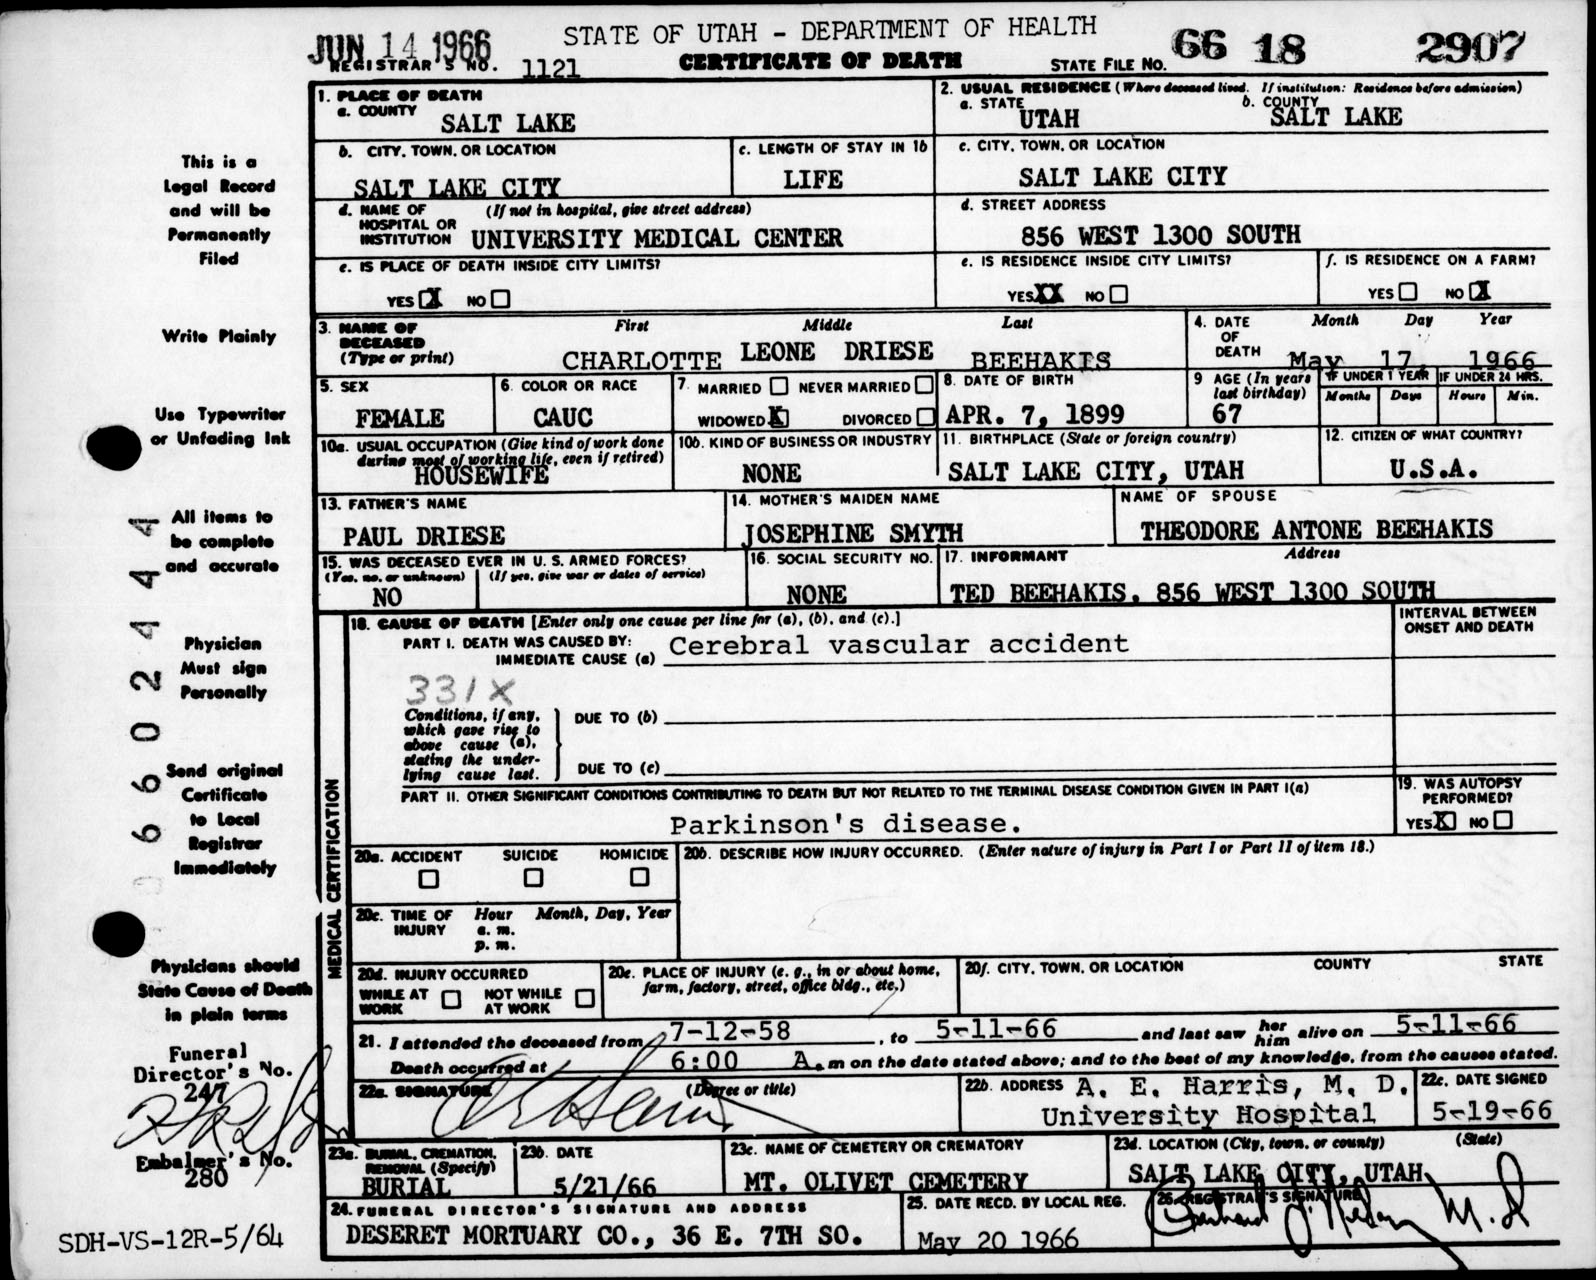 JUN 14 1966
STATE OF UTAH - DEPARTMENT OF HEALTH
66 18 2907
REGISTRAR'S NO. 1121
CERTIFICATE OF DEATH
STATE FILE NO.
1. PLACE OF DEATH
a. COUNTY
SALT LAKE
2. USUAL RESIDENCE (Where deceased lived. If institution: Residence before admission)
a. STATE b. COUNTY
UTAH SALT LAKE
b. CITY, TOWN, OR LOCATION
SALT LAKE CITY
c. LENGTH OF STAY IN 1b
LIFE
c. CITY, TOWN, OR LOCATION
SALT LAKE CITY
d. NAME OF (If not in hospital, give street address)
HOSPITAL OR
INSTITUTION UNIVERSITY MEDICAL CENTER
d. STREET ADDRESS
856 WEST 1300 SOUTH
e. IS PLACE OF DEATH INSIDE CITY LIMITS?
YES X NO
e. IS RESIDENCE INSIDE CITY LIMITS?
YES XX NO
f. IS RESIDENCE ON A FARM?
YES NO X
3. NAME OF First Middle Last
DECEASED
(Type or print) CHARLOTTE LEONE DRIESE BEEHAKIS
4. DATE Month Day Year
OF
DEATH May 17 1966
5. SEX
FEMALE
6. COLOR OR RACE
CAUC
7. MARRIED NEVER MARRIED
WIDOWED X DIVORCED
8. DATE OF BIRTH
APR. 7, 1899
9 AGE (In years
last birthday)
67
IF UNDER 1 YEAR
Months Days
IF UNDER 24 HRS.
Hours Min.
10a. USUAL OCCUPATION (Give kind of work done
during most of working life, even if retired)
HOUSEWIFE
10b. KIND OF BUSINESS OR INDUSTRY
NONE
11. BIRTHPLACE (State or foreign country)
SALT LAKE CITY, UTAH
12. CITIZEN OF WHAT COUNTRY?
U.S.A.
13. FATHER'S NAME
PAUL DRIESE
14. MOTHER'S MAIDEN NAME
JOSEPHINE SMYTH
NAME OF SPOUSE
THEODORE ANTONE BEEHAKIS
15. WAS DECEASED EVER IN U. S. ARMED FORCES?
(Yes, no, or unknown) (If yes, give war or dates of service)
NO
16. SOCIAL SECURITY NO.
NONE
17. INFORMANT Address
TED BEEHAKIS, 856 WEST 1300 SOUTH
MEDICAL CERTIFICATION
18. CAUSE OF DEATH [Enter only one cause per line for (a), (b), and (c).]
INTERVAL BETWEEN
ONSET AND DEATH
PART I. DEATH WAS CAUSED BY:
IMMEDIATE CAUSE (a) Cerebral vascular accident
331X
Conditions, if any,
which gave rise to
above cause (a),
stating the under-
lying cause last.
DUE TO (b)
DUE TO (c)
PART II. OTHER SIGNIFICANT CONDITIONS CONTRIBUTING TO DEATH BUT NOT RELATED TO THE TERMINAL DISEASE CONDITION GIVEN IN PART I(a)
Parkinson's disease.
19. WAS AUTOPSY
PERFORMED?
YES X NO
20a. ACCIDENT SUICIDE HOMICIDE
20b. DESCRIBE HOW INJURY OCCURRED. (Enter nature of injury in Part I or Part II of item 18.)
20c. TIME OF Hour Month, Day, Year
INJURY a. m.
p. m.
20d. INJURY OCCURRED
WHILE AT NOT WHILE
WORK AT WORK
20e. PLACE OF INJURY (e. g., in or about home,
farm, factory, street, office bldg., etc.)
20f. CITY, TOWN, OR LOCATION COUNTY STATE
21. I attended the deceased from 7-12-58, to 5-11-66 and last saw her him alive on 5-11-66
Death occurred at 6:00 A. m on the date stated above; and to the best of my knowledge, from the causes stated.
22a. SIGNATURE (Degree or title)
22b. ADDRESS A. E. Harris, M. D.
University Hospital
22c. DATE SIGNED
5-19-66
23a. BURIAL, CREMATION,
REMOVAL (Specify)
BURIAL
23b. DATE
5/21/66
23c. NAME OF CEMETERY OR CREMATORY
MT. OLIVET CEMETERY
23d. LOCATION (City, town, or county) (State)
SALT LAKE CITY, UTAH
24. FUNERAL DIRECTOR'S SIGNATURE AND ADDRESS
DESERET MORTUARY CO., 36 E. 7TH SO.
25. DATE RECD. BY LOCAL REG.
May 20 1966
26. REGISTRAR'S SIGNATURE
M.D
This is a
Legal Record
and will be
Permanently
Filed
Write Plainly
Use Typewriter
or Unfading Ink
All items to
be complete
and accurate
Physician
Must sign
Personally
Send original
Certificate
to Local
Registrar
Immediately
Physicians should
State Cause of Death
in plain terms
Funeral
Director's No.
247
Embalmer's No.
280
6 6 0 2 4 4 4
SDH-VS-12R-5/64